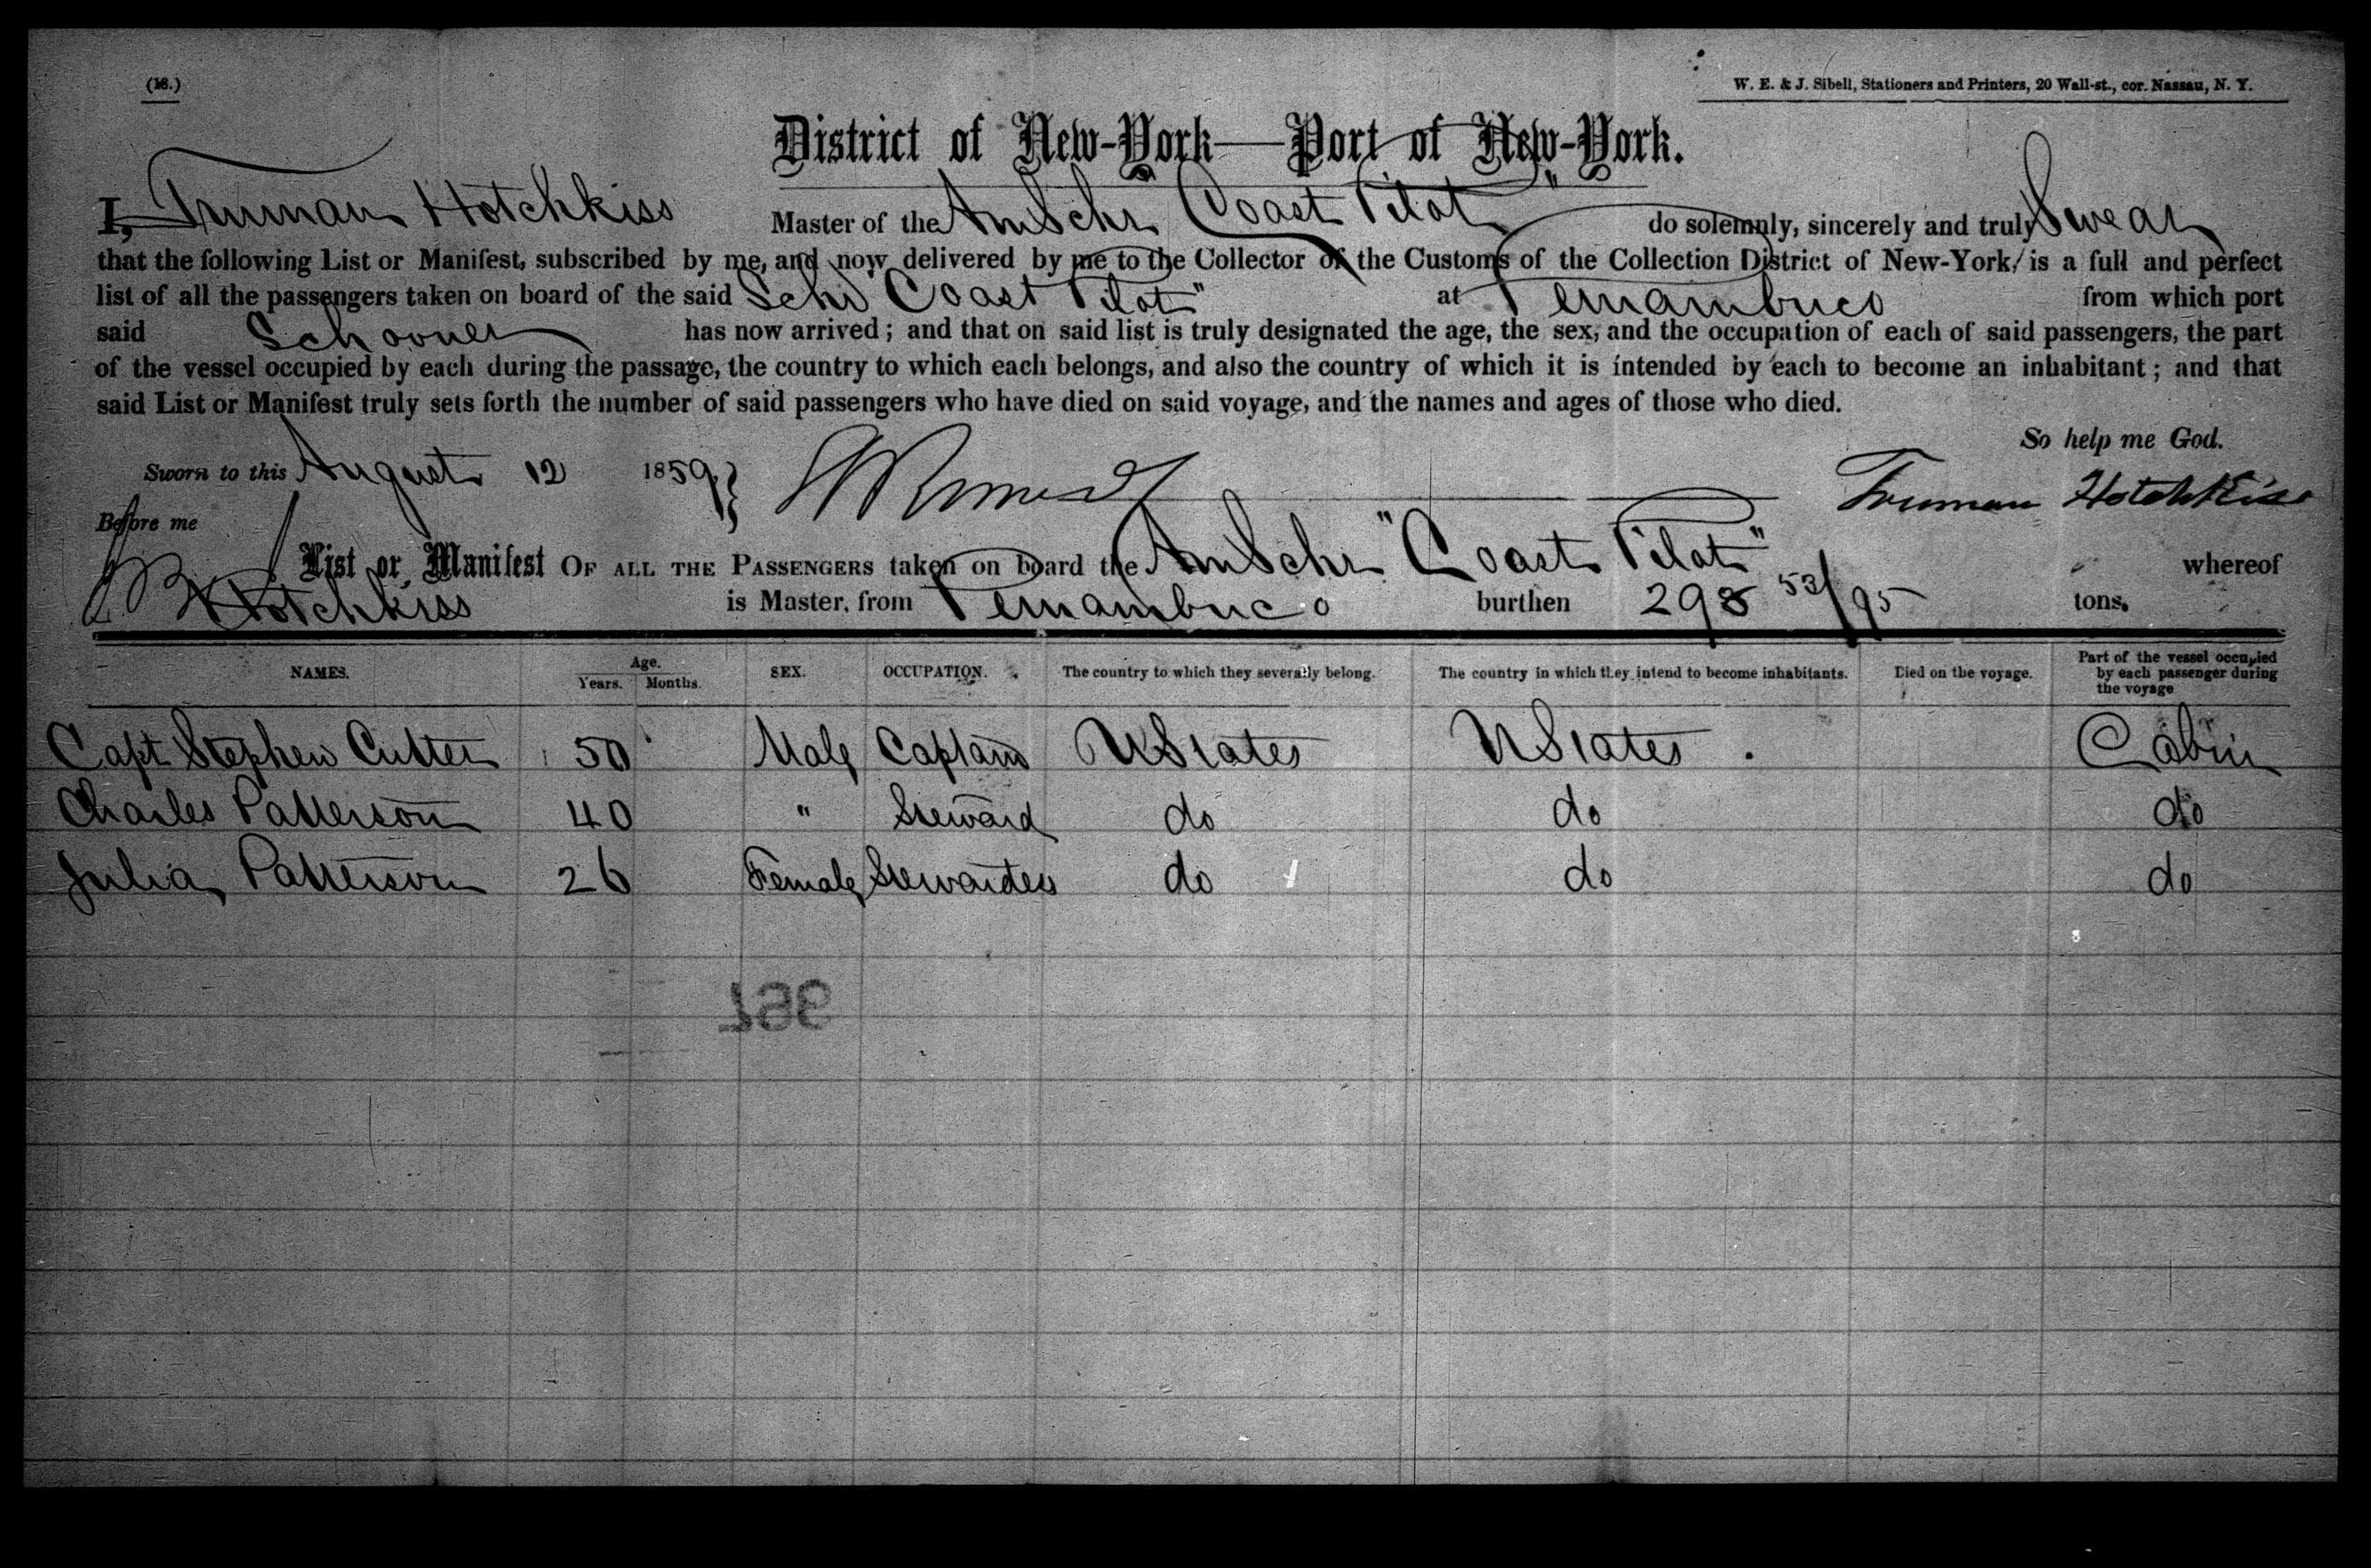 (18.)
W. E. & J. Sibell, Stationers and Printers, 20 Wall-st., cor. Nassau, N. Y.
District of New-York—Port of New-York.
I, Truman Hotchkiss Master of the Am Schr "Coast Pilot" do solemnly, sincerely and truly Swear
that the following List or Manifest, subscribed by me, and now delivered by me to the Collector of the Customs of the Collection District of New-York, is a full and perfect
list of all the passengers taken on board of the said Schr "Coast Pilot" at Pernambuco from which port
said Schooner has now arrived; and that on said list is truly designated the age, the sex, and the occupation of each of said passengers, the part
of the vessel occupied by each during the passage, the country to which each belongs, and also the country of which it is intended by each to become an inhabitant; and that
said List or Manifest truly sets forth the number of said passengers who have died on said voyage, and the names and ages of those who died.
So help me God.
Sworn to this August 12 1859 Truman Hotchkiss
Before me
List or Manifest OF ALL THE PASSENGERS taken on board the Am Schr "Coast Pilot" whereof
Hotchkiss is Master, from Pernambuco burthen 298 53/95 tons.
NAMES. Age. Years. Months. SEX. OCCUPATION. The country to which they severally belong. The country in which they intend to become inhabitants. Died on the voyage. Part of the vessel occupied by each passenger during the voyage
Capt Stephen Cutter 50 Male Captain U States U States Cabin
Charles Patterson 40 " Steward do do do
Julia Patterson 26 Female Stewardess do do do